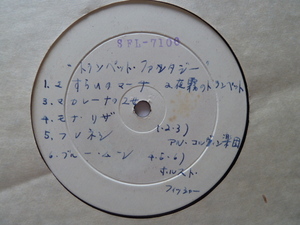 SFL-7100
"トランペット・ファンタジー"
1. さすらいのマーチ 2 夜霧のトランペット
3. マカレーナの乙女
4. モナ・リザ
5. フレネシ (1.2.3)
アル・コルデン楽団
6. ブルー・ムーン 4.5.6)
ホルスト・
フィッシャー